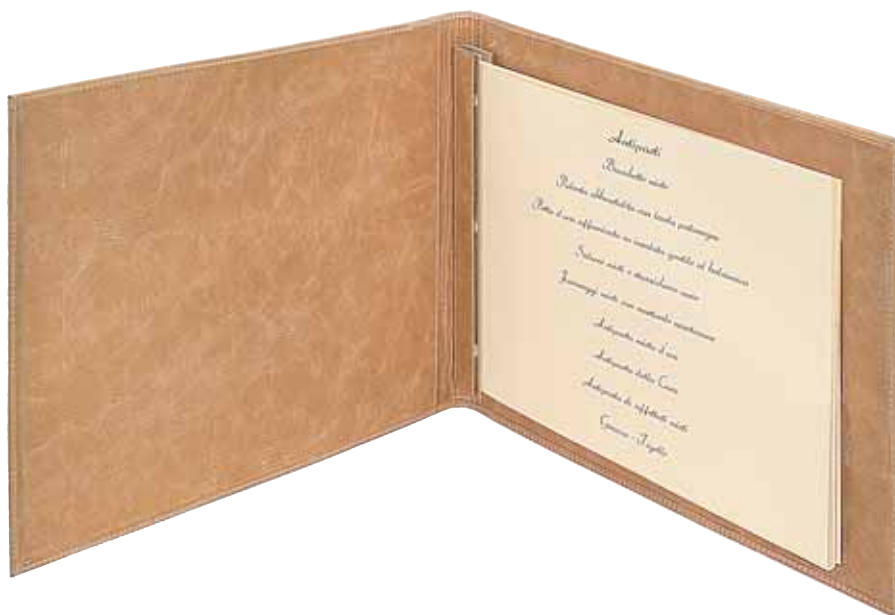 Antipasti
Bruschette miste
Polenta abbrustolita con lardo
Petto d'oca affumicato su insalata gentile al balsamico
Salumi misti e
Formaggi misti con mostarda
Antipasto misto d'oca
Antipasto della Casa
Antipasto di affettati misti